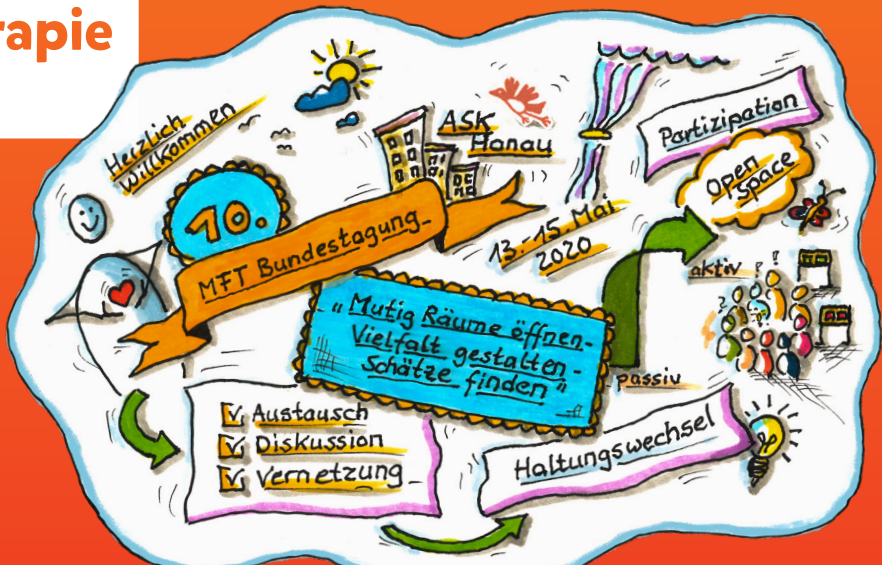 rapie
Herzlich
Willkommen
ASK
Hanau
Partizipation
Open
Space
10.
MFT Bundestagung
13.-15. Mai
2020
aktiv ? !
"Mutig Räume öffnen-
Vielfalt gestalten -
Schätze finden"
passiv
v Austausch
v Diskussion
v Vernetzung
Haltungswechsel